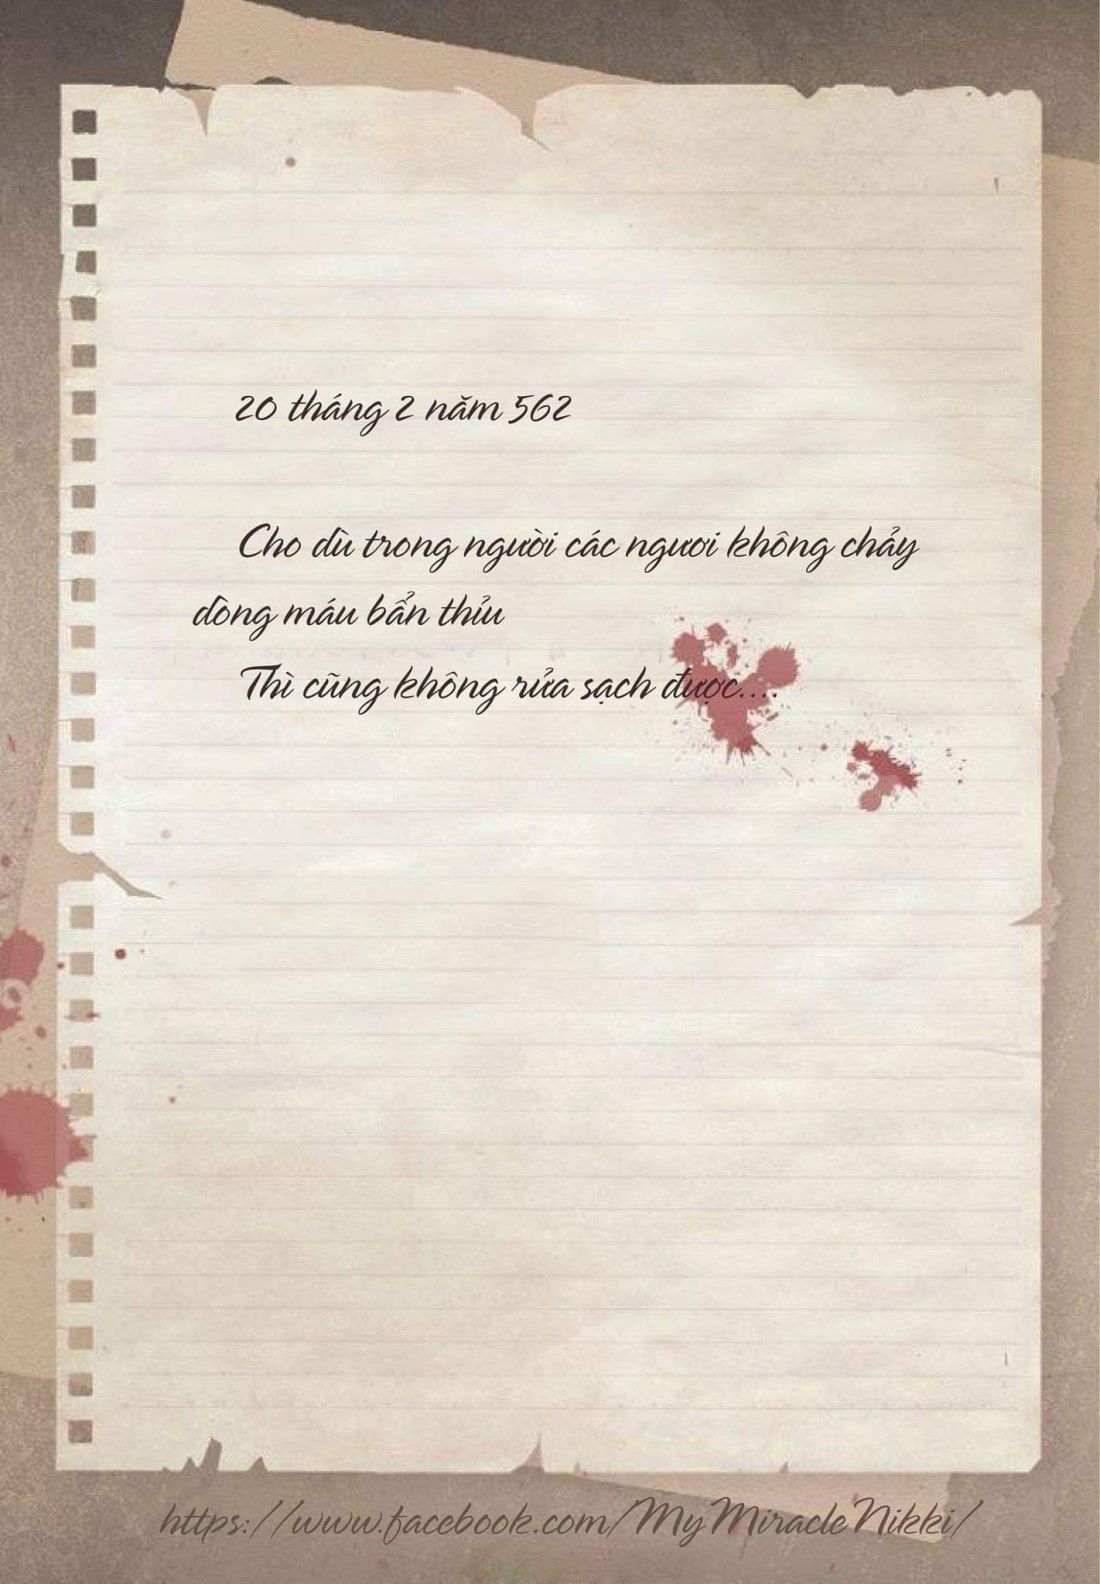 20 tháng 2 năm 562
Cho dù trong người các ngươi không chảy
dòng máu bẩn thỉu
Thì cũng không rửa sạch được....
https://www.facebook.com/MyMiracleNikki/